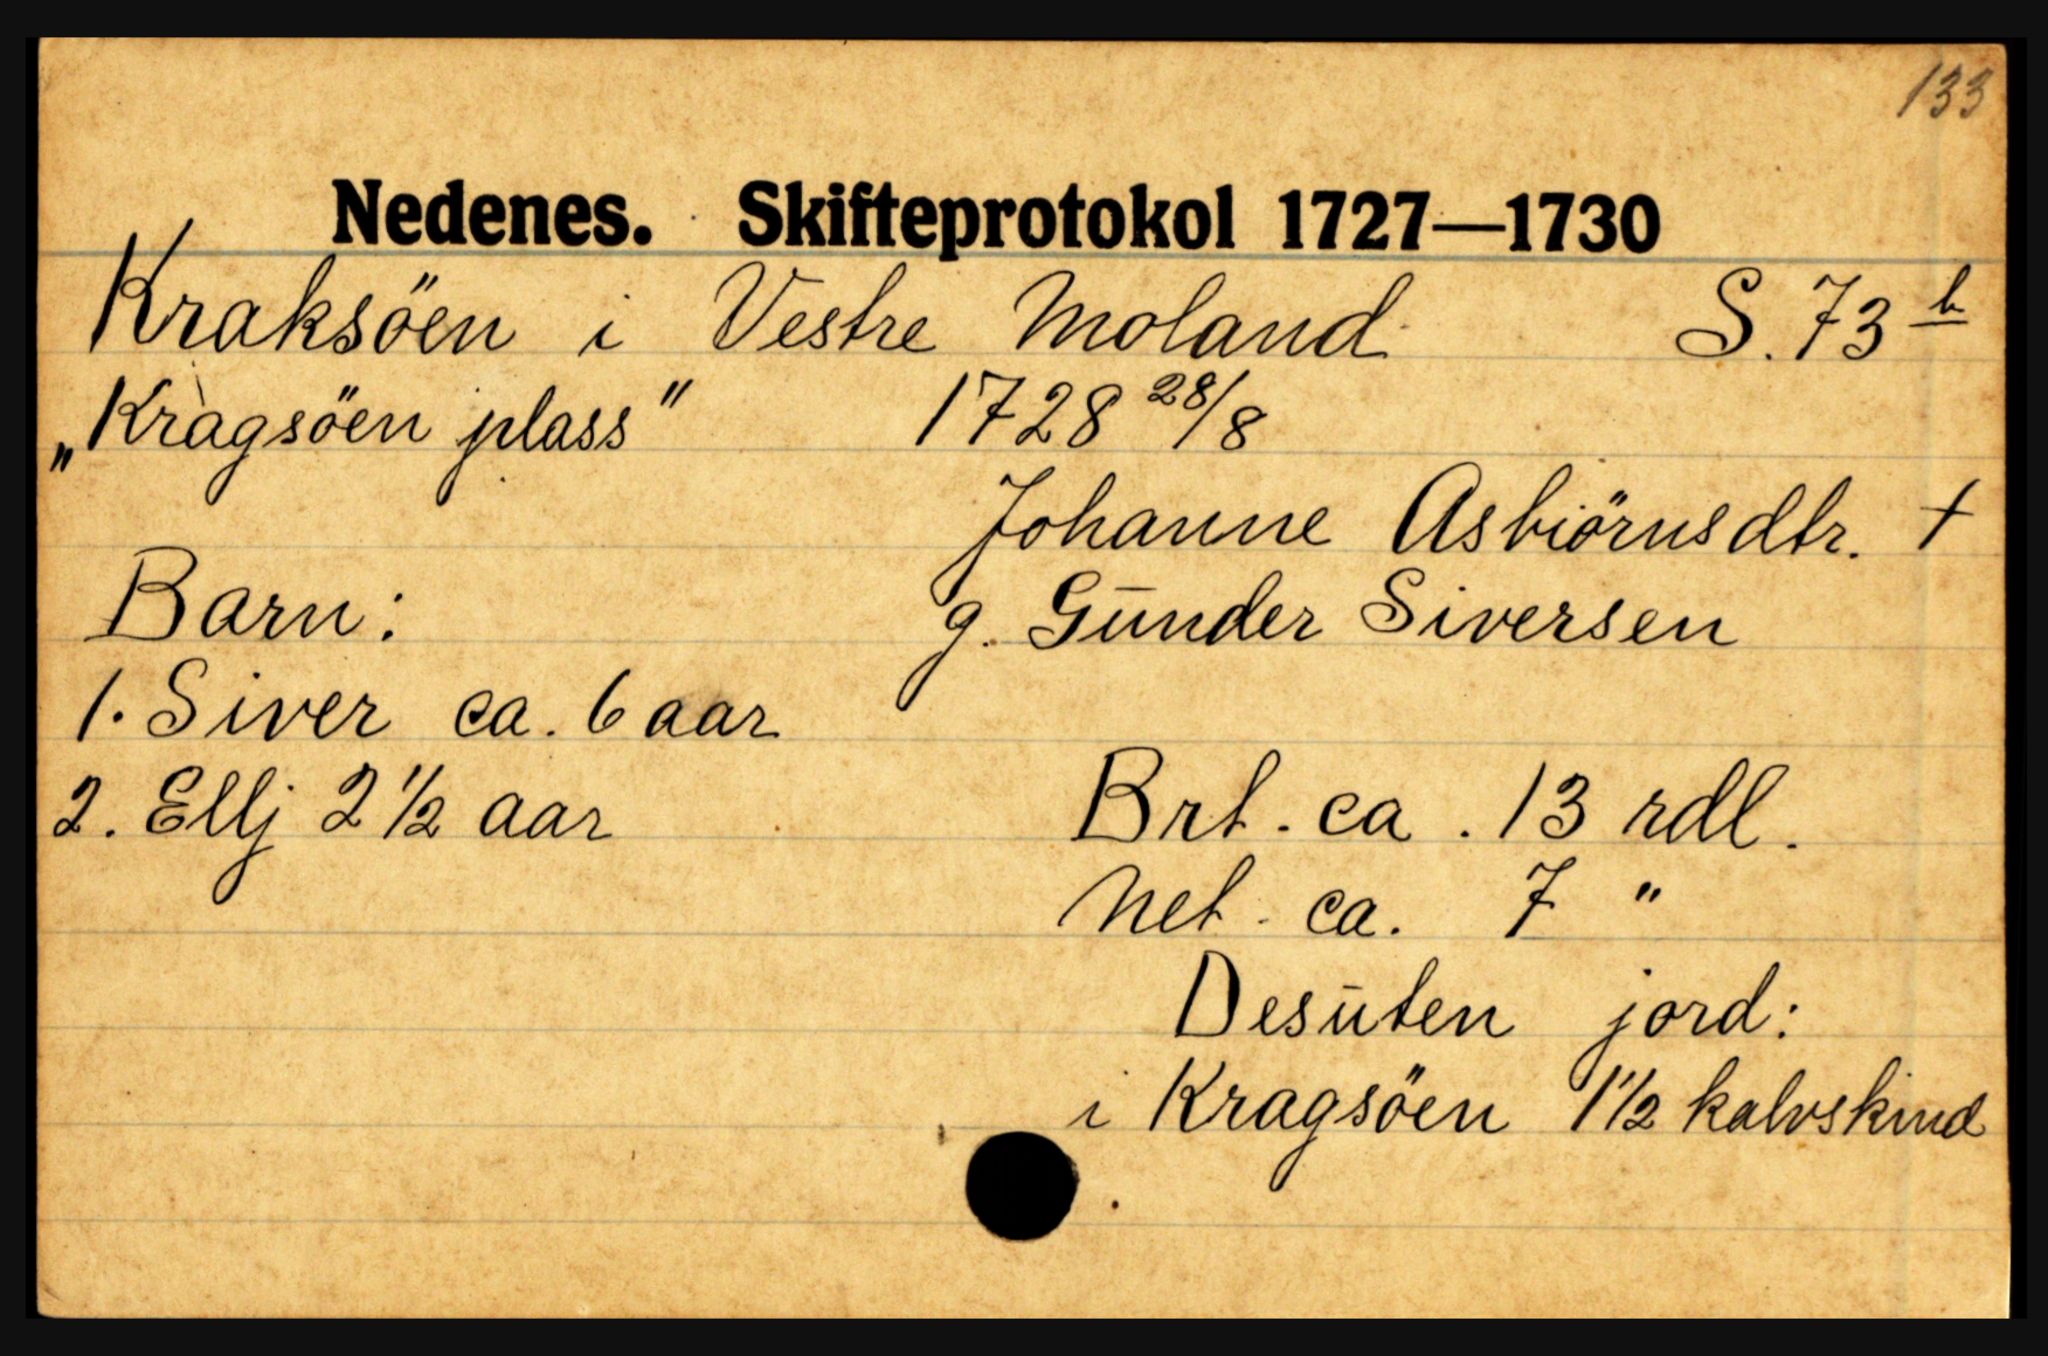 133
Nedenes. Skifteprotokol 1727—1730
Kraksöen i Vestre Moland S. 73 b
„Kragsöen plass" 1728 28/8
Johanne Asbiörnsdtr. +
Barn: g. Gunder Siversen
1. Siver ca. 6 aar
2. Ellj 2 1/2 aar Brt. ca. 13 rdl.
Net. ca. 7 "
Desuten jord:
i Kragsöen 1 1/2 kalvskind